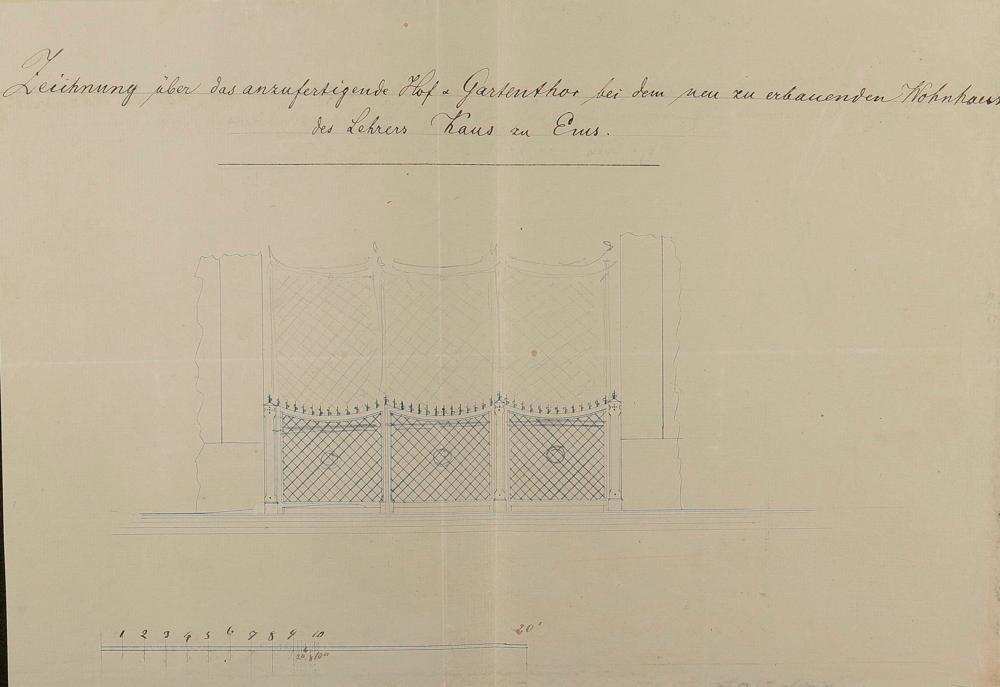 Zeichnung über das anzufertigende Hof & Gartenthor bei dem neu zu erbauenden Wohnhaus
des Lehrers Kaus zu Ems.
1 2 3 4 5 6 7 8 9 10
20'